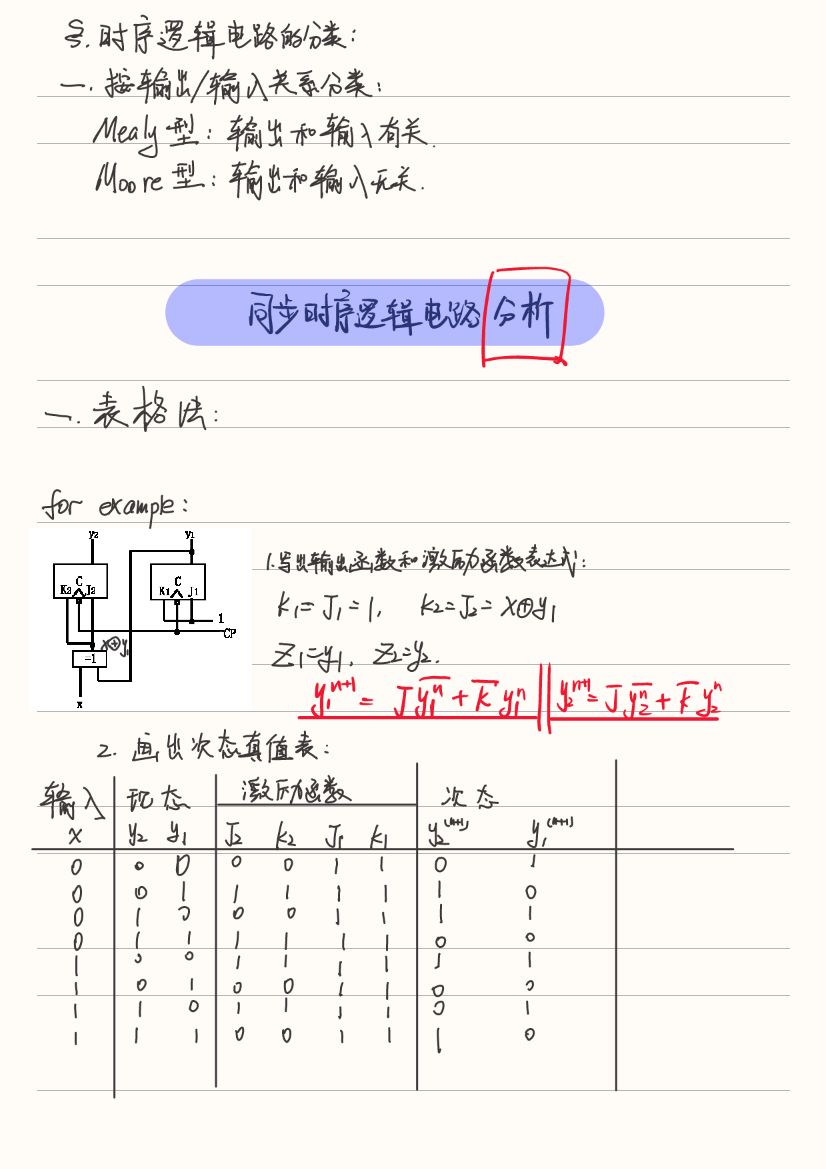 §. 时序逻辑电路的分类:
一. 按输出/输入关系分类:
Mealy型: 输出和输入有关.
Moore型: 输出和输入无关.
同步时序逻辑电路分析
一. 表格法:
for example:
y₂ y₁
C C
K₂ J₂ K₁ J₁
1
CP
x⊕y₁
=1
x
1.写出输出函数和激励函数表达式:
K₁=J₁=1, K₂=J₂=x⊕y₁
Z₁=y₁, Z₂=y₂.
y₁ⁿ⁺¹ = J y̅₁ⁿ + K̅ y₁ⁿ || y₂ⁿ⁺¹ = J y̅₂ⁿ + K̅ y₂ⁿ
2. 画出次态真值表:
输入 现态 激励函数 次态
x y₂ y₁ J₂ K₂ J₁ K₁ y₂⁽ⁿ⁺¹⁾ y₁⁽ⁿ⁺¹⁾
0 0 0 0 0 1 1 0 1
0 0 1 1 1 1 1 1 0
0 1 0 0 0 1 1 1 1
0 1 1 1 1 1 1 0 0
1 0 0 1 1 1 1 1 1
1 0 1 0 0 1 1 0 0
1 1 0 1 1 1 1 0 1
1 1 1 0 0 1 1 1 0